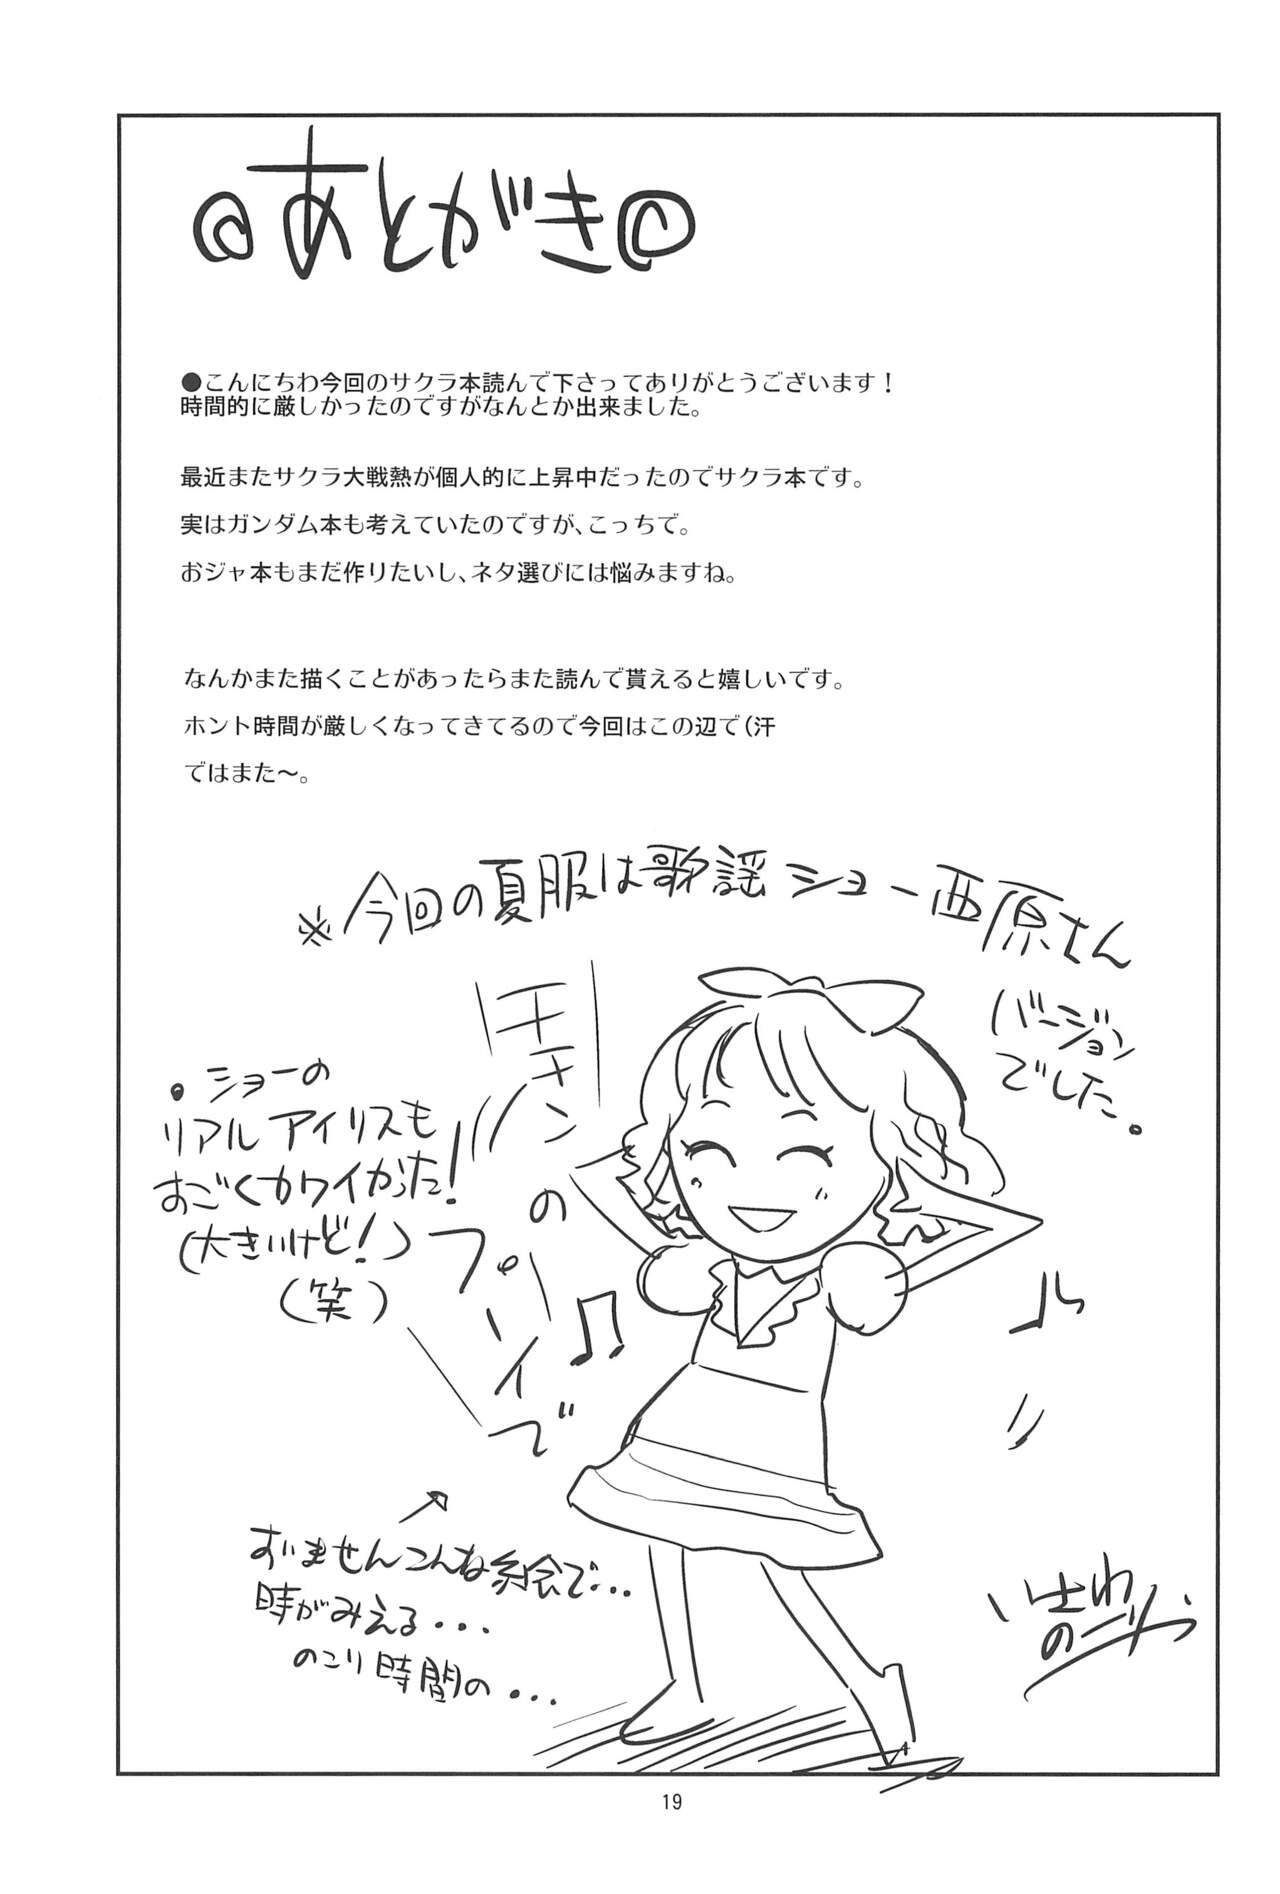 @あとがき@
●こんにちわ今回のサクラ本読んで下さってありがとうございます!
時間的に厳しかったのですがなんとか出来ました。
最近またサクラ大戦熱が個人的に上昇中だったのでサクラ本です。
実はガンダム本も考えていたのですが、こっちで。
おジャ本もまだ作りたいし、ネタ選びには悩みますね。
なんかまた描くことがあったらまた読んで貰えると嬉しいです。
ホント時間が厳しくなってきてるので今回はこの辺で(汗
ではまた〜。
※今回の夏服は歌謡ショー西原さん
バージョン
でした。
・ショーの
リアルアイリスも
すごくカワイかった!
(大きいけど!)
(笑)
キネマ
のフンイで
すいませんこんな絵で・・・
時がみえる・・・
のこり時間の・・・
19